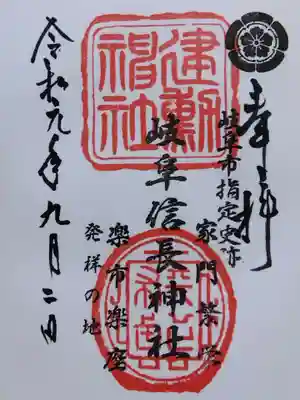 奉拝
岐阜市指定史跡
家門繁栄
建勲
神社
岐阜信長神社
楽市楽座
発祥の地
令和元年九月二日